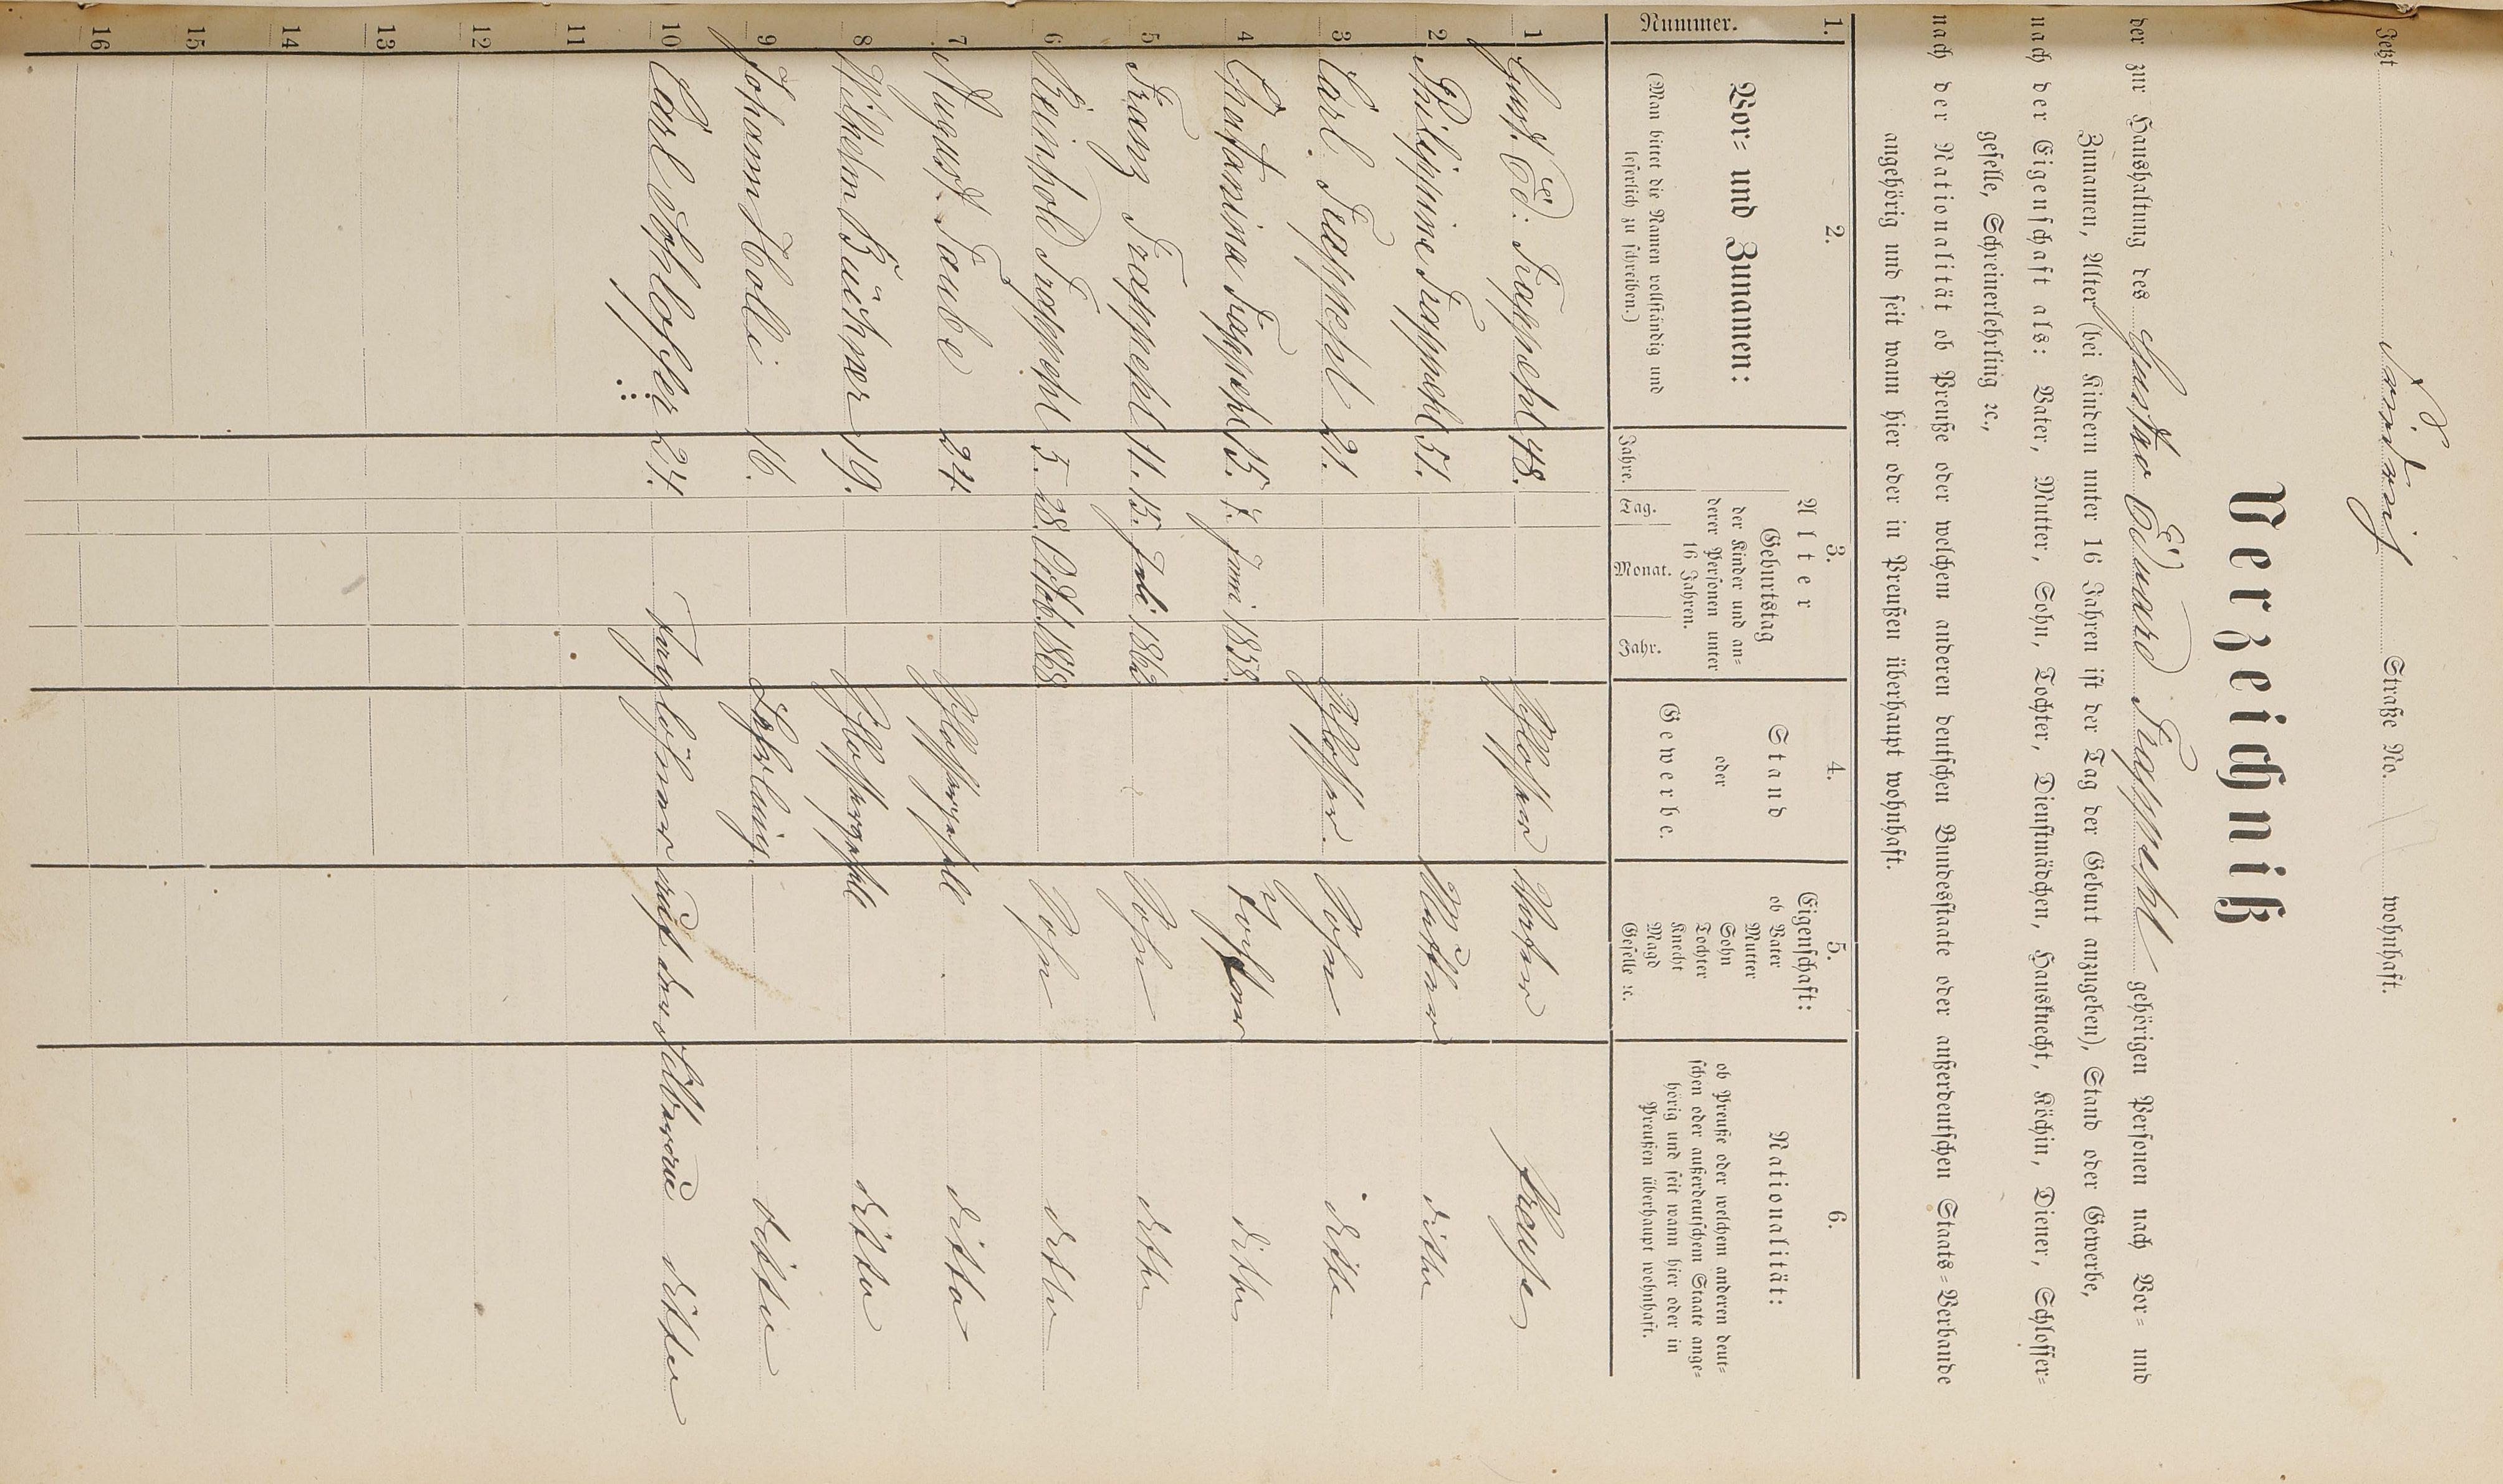 Jetzt Straße No. wohnhaft.
Verzeichniß
der zur Haushaltung des Gustav Eduard Trappehl gehörigen Personen nach Vor= und
Zunamen, Alter (bei Kindern unter 16 Jahren ist der Tag der Geburt anzugeben), Stand oder Gewerbe,
nach der Eigenschaft als: Vater, Mutter, Sohn, Tochter, Dienstmädchen, Hausknecht, Köchin, Diener, Schlosser=
geselle, Schreinerlehrling ꝛc.,
nach der Nationalität ob Preuße oder welchem anderen deutschen Bundesstaate oder außerdeutschen Staats=Verbande
angehörig und seit wann hier oder in Preußen überhaupt wohnhaft.
1. 2. 3. 4. 5. 6.
Nummer.
Vor= und Zunamen:
(Man bittet die Namen vollständig und
leserlich zu schreiben.)
Alter
Jahre.
Geburtstag
der Kinder und an=
derer Personen unter
16 Jahren.
Tag. Monat. Jahr.
Stand
oder
Gewerbe.
Eigenschaft:
ob Vater
Mutter
Sohn
Tochter
Knecht
Magd
Geselle ꝛc.
Nationalität:
ob Preuße oder welchem anderen deut=
schen oder außerdeutschem Staate ange=
hörig und seit wann hier oder in
Preußen überhaupt wohnhaft.
1 Gust. Ed. Trappehl 48. Schlosser Vater Preuße
2 Philippine Trappehl 51. Mutter ditto
3 Carl Trappehl 21. Schlosser. Sohn ditto
4 Trappehl 15. 7. Juni 1858. Tochter ditto
5 Franz Trappehl 11. 15. Juli 1862 Sohn ditto
6 Reinhold Trappehl 5. 28. Octob. 1868 Sohn ditto
7 August Taube 24. Schlossergesell ditto
8 Wilhelm Büchner 19. Schlossergesell ditto
9 Johann Holli 16. Lehrling. ditto
10 Carl Schloßer 24. Tagelöhner ditto
11
12
13
14
15
16